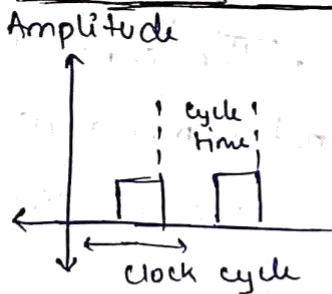 Amplitude
cycle
time
clock cycle